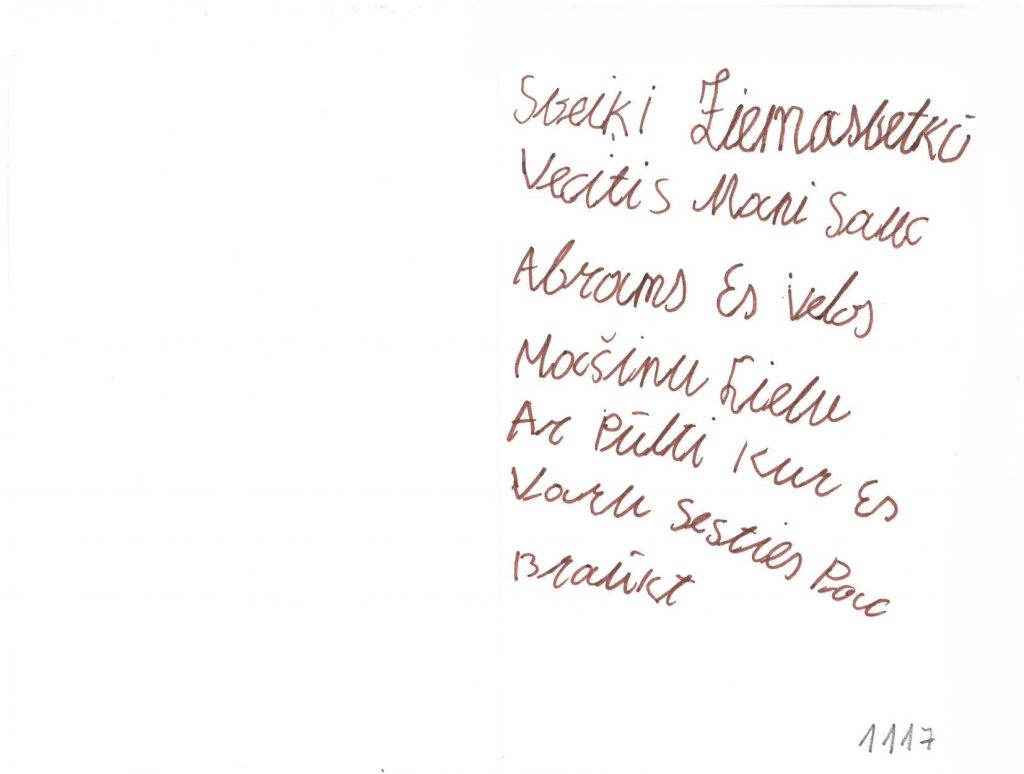 Sveiķi Ziemasvetkū
Vecitis Mani Sauc
Abrams Es velos
Mašinu Lielu
Ar Pūlti Kur Es
Varu sesties Pac
Braūkt
1117